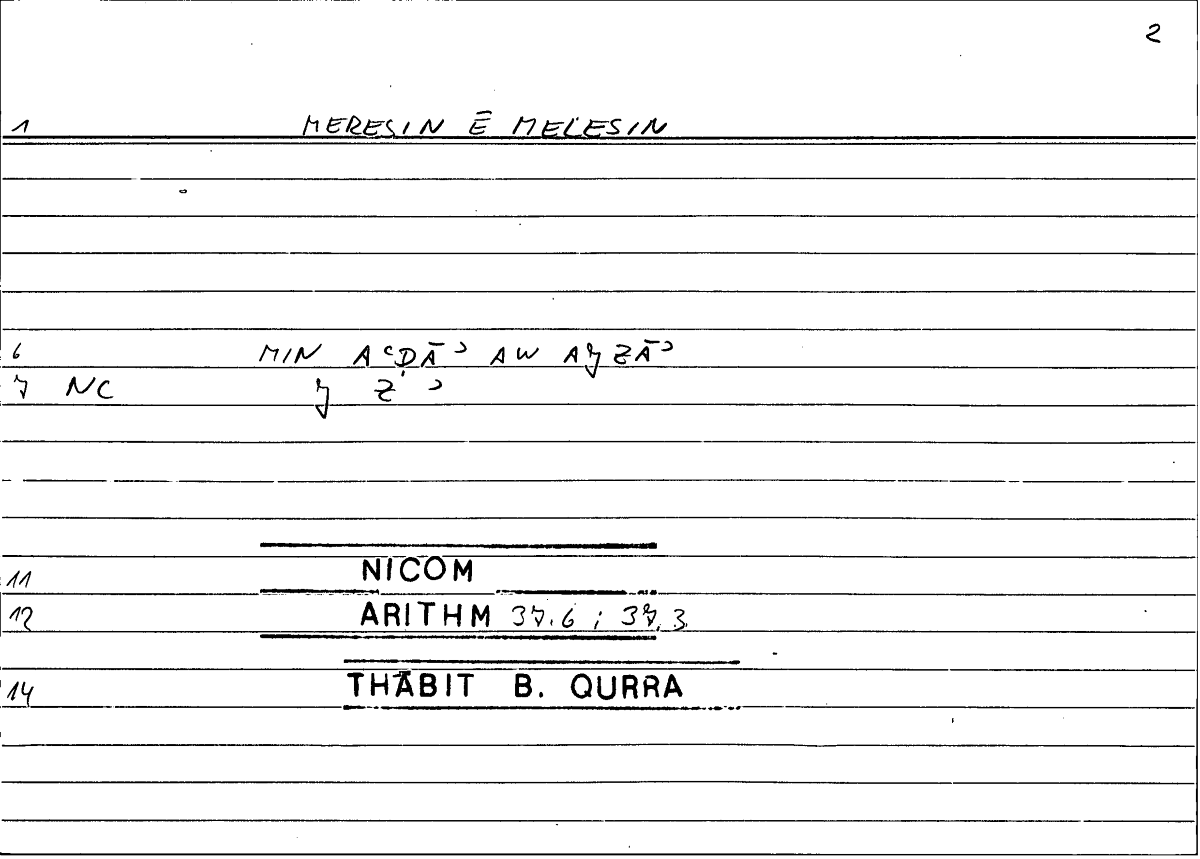 2
1 MERESIN Ē MELESIN
6 MIN AʿḌĀʾ AW AJZĀʾ
7 NC J Z ʾ
11 NICOM
12 ARITHM 37.6 ; 37.3
14 THĀBIT B. QURRA